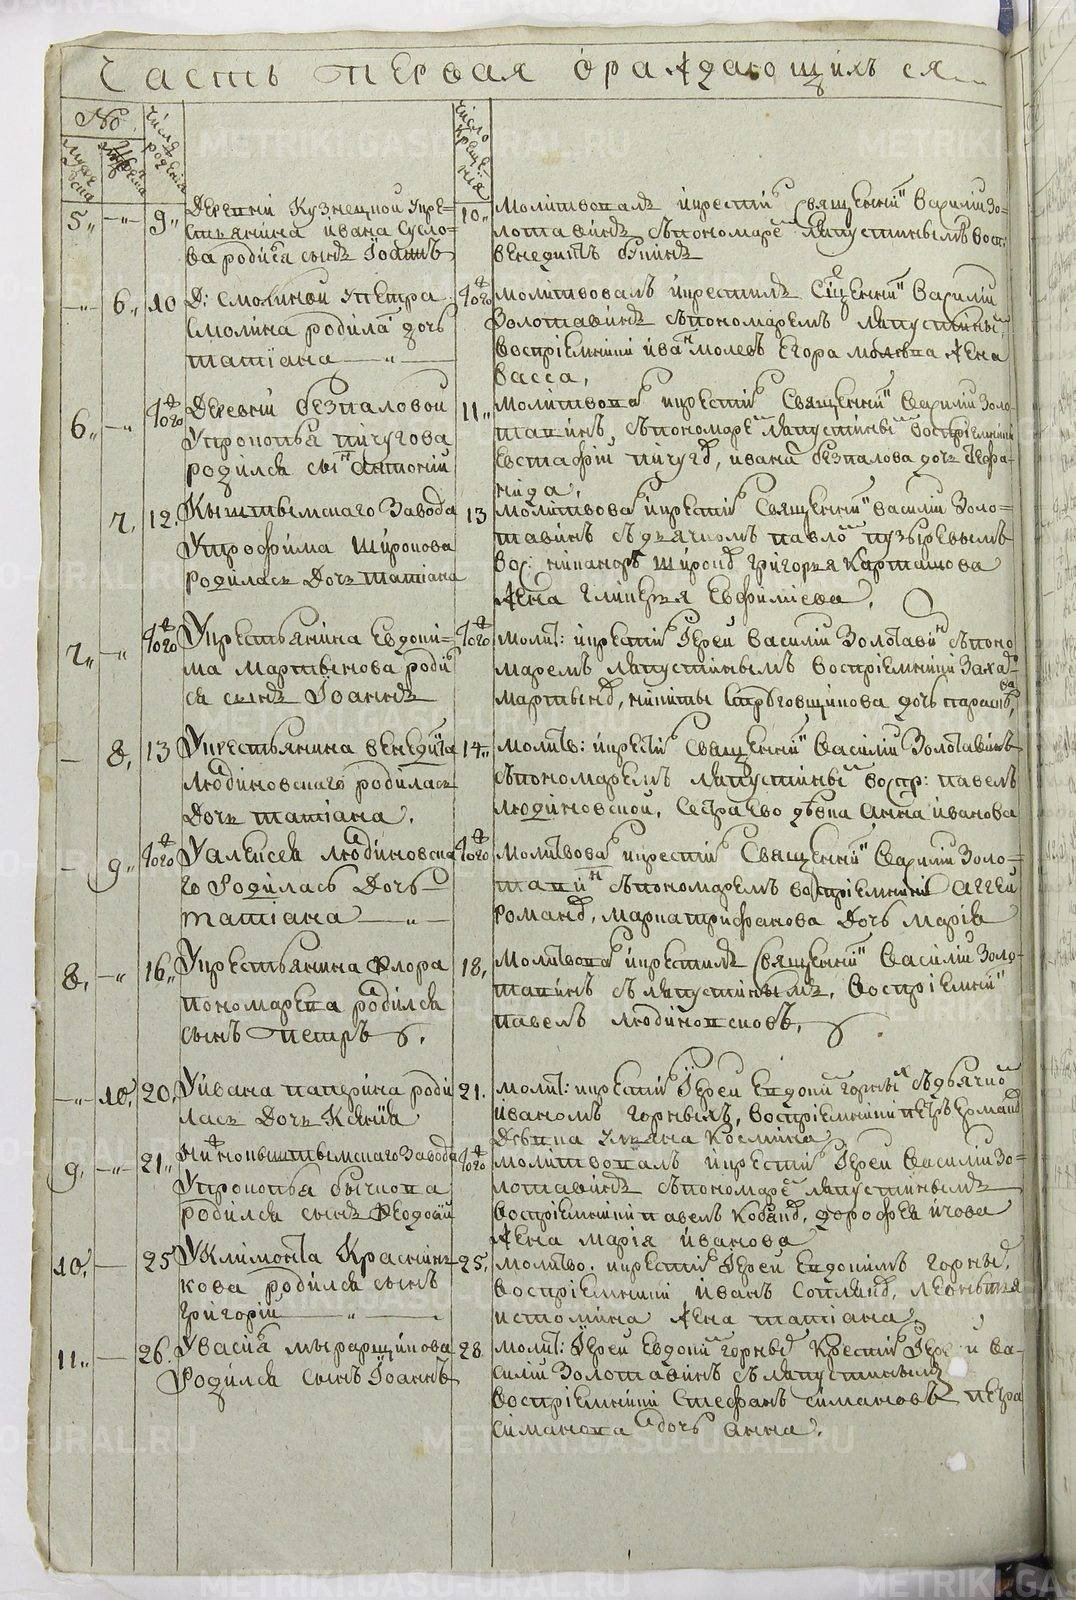 Часть первая о раждающихъ ся
№
мужеска
женска
число рожденія
число крещенія
5„ —„— 9„ Деревни Кузнецкой укре-
стьянина ивана Сусло-
ва родился сынъ Іоаннъ
10„ Молитвовалъ икрестилъ священникъ Василий Зо-
лотавинъ съпономаремъ Лапустинымъ восп:
венедиктъ
—„— 6„ 10 Д: Смолиной упетра
Смолина родила дочь
татіана —„—
тогож Молитвовалъ икрестилъ Священникъ Василий
Золотавинъ съпономаремъ Лапустинымъ
воспріемники Егора жена
Васса,
6„ —„— тогож Деревни безпаловой
упрокопья пичугова
родился сынъ антоній
11„ Молитвова икрестилъ Священникъ Василий Золо-
тавинъ съпономаремъ Лапустинымъ воспріемники
Евстафій пичуговъ, ивана безпалова дочь
7, 12. Кыштымскаго Завода
утрофима Широкова
родилась дочь татіана
13 Молитвова икрестилъ Священникъ василий Золо-
тавинъ съдьячкомъ павломъ пузыревымъ
вос: никаноръ Широковъ григорья Карташова
жена гликерья Евфиміева.
7„ —„— тогож укрестьянина Евдоки-
ма мартынова родил
ся сынъ Іоаннъ
тогож Молит: икрестилъ Іерей василий Золотавинъ съпоно
маремъ Лапустинымъ воспріемники Заха
мартыновъ, никиты дочь параск
— 8, 13 укрестьянина венедикта
людиновскаго родилась
Дочь татіана.
14„ Молитв: икрестилъ Священникъ василий Золотавинъ
съпономаремъ Лапустинымъ воспр: павелъ
людиновской, Сестра Ево дѣвка Анна иванова
— 9„ тогож уалексея людиновска
го Родилась Дочь
татіана —„—
тогож Молитвова икрестилъ Священникъ Василий Золо-
тавинъ съпономаремъ воспріемники Аггей
Романовъ, марка трифанова Дочь марія
8, —„ 16„ укрестьянина Флора
пономарева родился
сынъ петръ
18, Молитвова икрестилъ священникъ василий Золо-
тавинъ съ лапустинымъ, воспріемникъ
павелъ людиновсковъ,
—„— 10, 20, уивана
лась Дочь Ксенія
21. Молит: икрестилъ Іерей Евдокимъ горныхъ съдьячкомъ
иваномъ горныхъ, воспріемники петръ Романовъ
Дѣвка ульяна космина
9, —„— 21„ нижнокыштымскаго Завода
упрокопья бычкова
родился сынъ Феодосій
тогож Молитвовалъ икрестилъ Іерей Василий Зо-
лотавинъ съпономаремъ Лапустинымъ
воспріемники павелъ дорофея
жена марія иванова
10, — 25 уКлимонта Красник
кова родился сынъ
Григорій —„—
25, Молитво. икрестилъ Іерей Евдокимъ горныхъ,
воспріемники иванъ леонтья
истомина жена татіана,
11„ — 26. увасилья мнрарщикова
Родился сынъ Іоаннъ
28. Молит: Іерей Евдокимъ горныхъ Крестилъ Іерей ва-
силий Золотавинъ съ лапустинымъ
воспріемники стефанъ симановъ петра
симанова дочь анна.